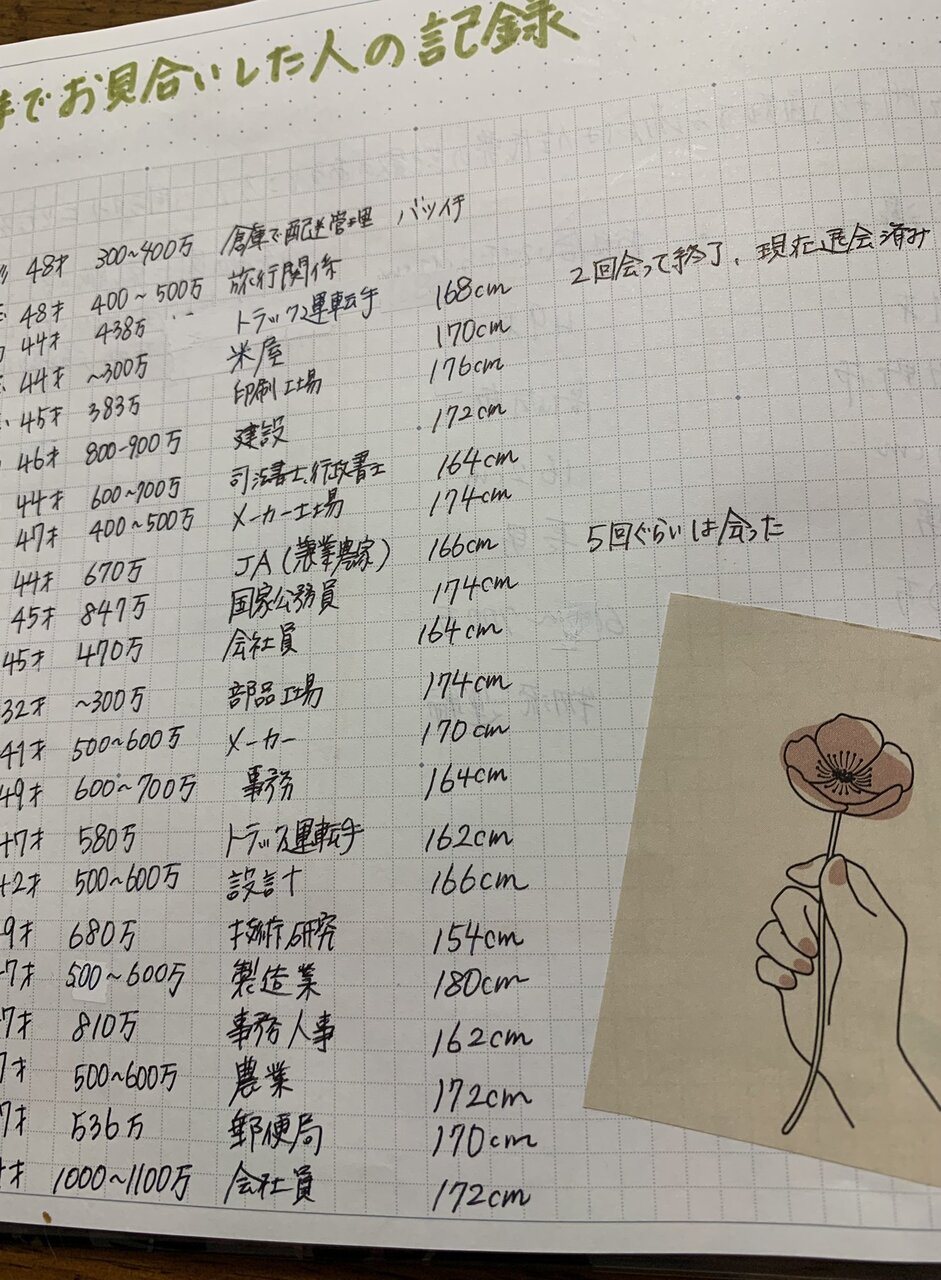 までお見合いした人の記録
48才 300~400万 倉庫で配送管理 バツイチ
48才 400~500万 旅行関係 2回会って終了、現在退会済み
44才 438万 トラック運転手 168cm
44才 ~300万 米屋 170cm
45才 383万 印刷工場 176cm
46才 800-900万 建設 172cm
44才 600~700万 司法書士、行政書士 164cm
47才 400~500万 メーカー工場 174cm
44才 670万 JA(兼業農家) 166cm 5回ぐらいは会った
45才 847万 国家公務員 174cm
45才 470万 会社員 164cm
32才 ~300万 部品工場 174cm
41才 500~600万 メーカー 170cm
49才 600~700万 事務 164cm
7才 580万 トラック運転手 162cm
2才 500~600万 設計 166cm
9才 680万 技術研究 154cm
7才 500~600万 製造業 180cm
7才 810万 事務人事 162cm
7才 500~600万 農業 172cm
7才 536万 郵便局 170cm
才 1000~1100万 会社員 172cm